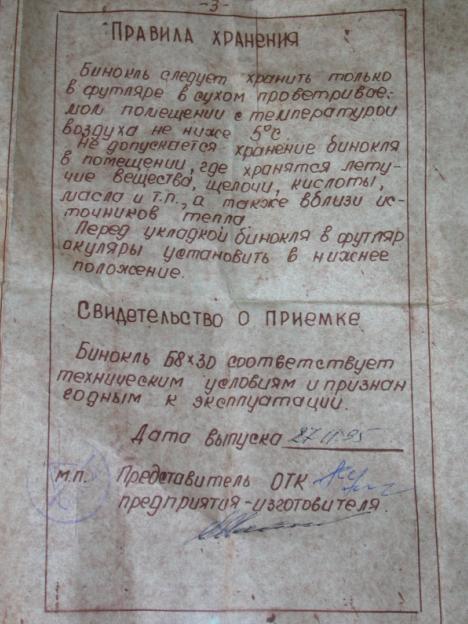 -3-
Правила хранения
Бинокль следует хранить только
в футляре в сухом проветривае-
мом помещении с температурой
воздуха не ниже 5°С
Не допускается хранение бинокля
в помещении, где хранятся лету-
чие вещества, щелочи, кислоты,
масла и т.п., а также вблизи ис-
точников тепла
Перед укладкой бинокля в футляр
окуляры установить в нижнее
положение.
Свидетельство о приемке
Бинокль Б8×30 соответствует
техническим условиям и признан
годным к эксплуатации.
Дата выпуска
м.п. Представитель ОТК
предприятия-изготовителя.